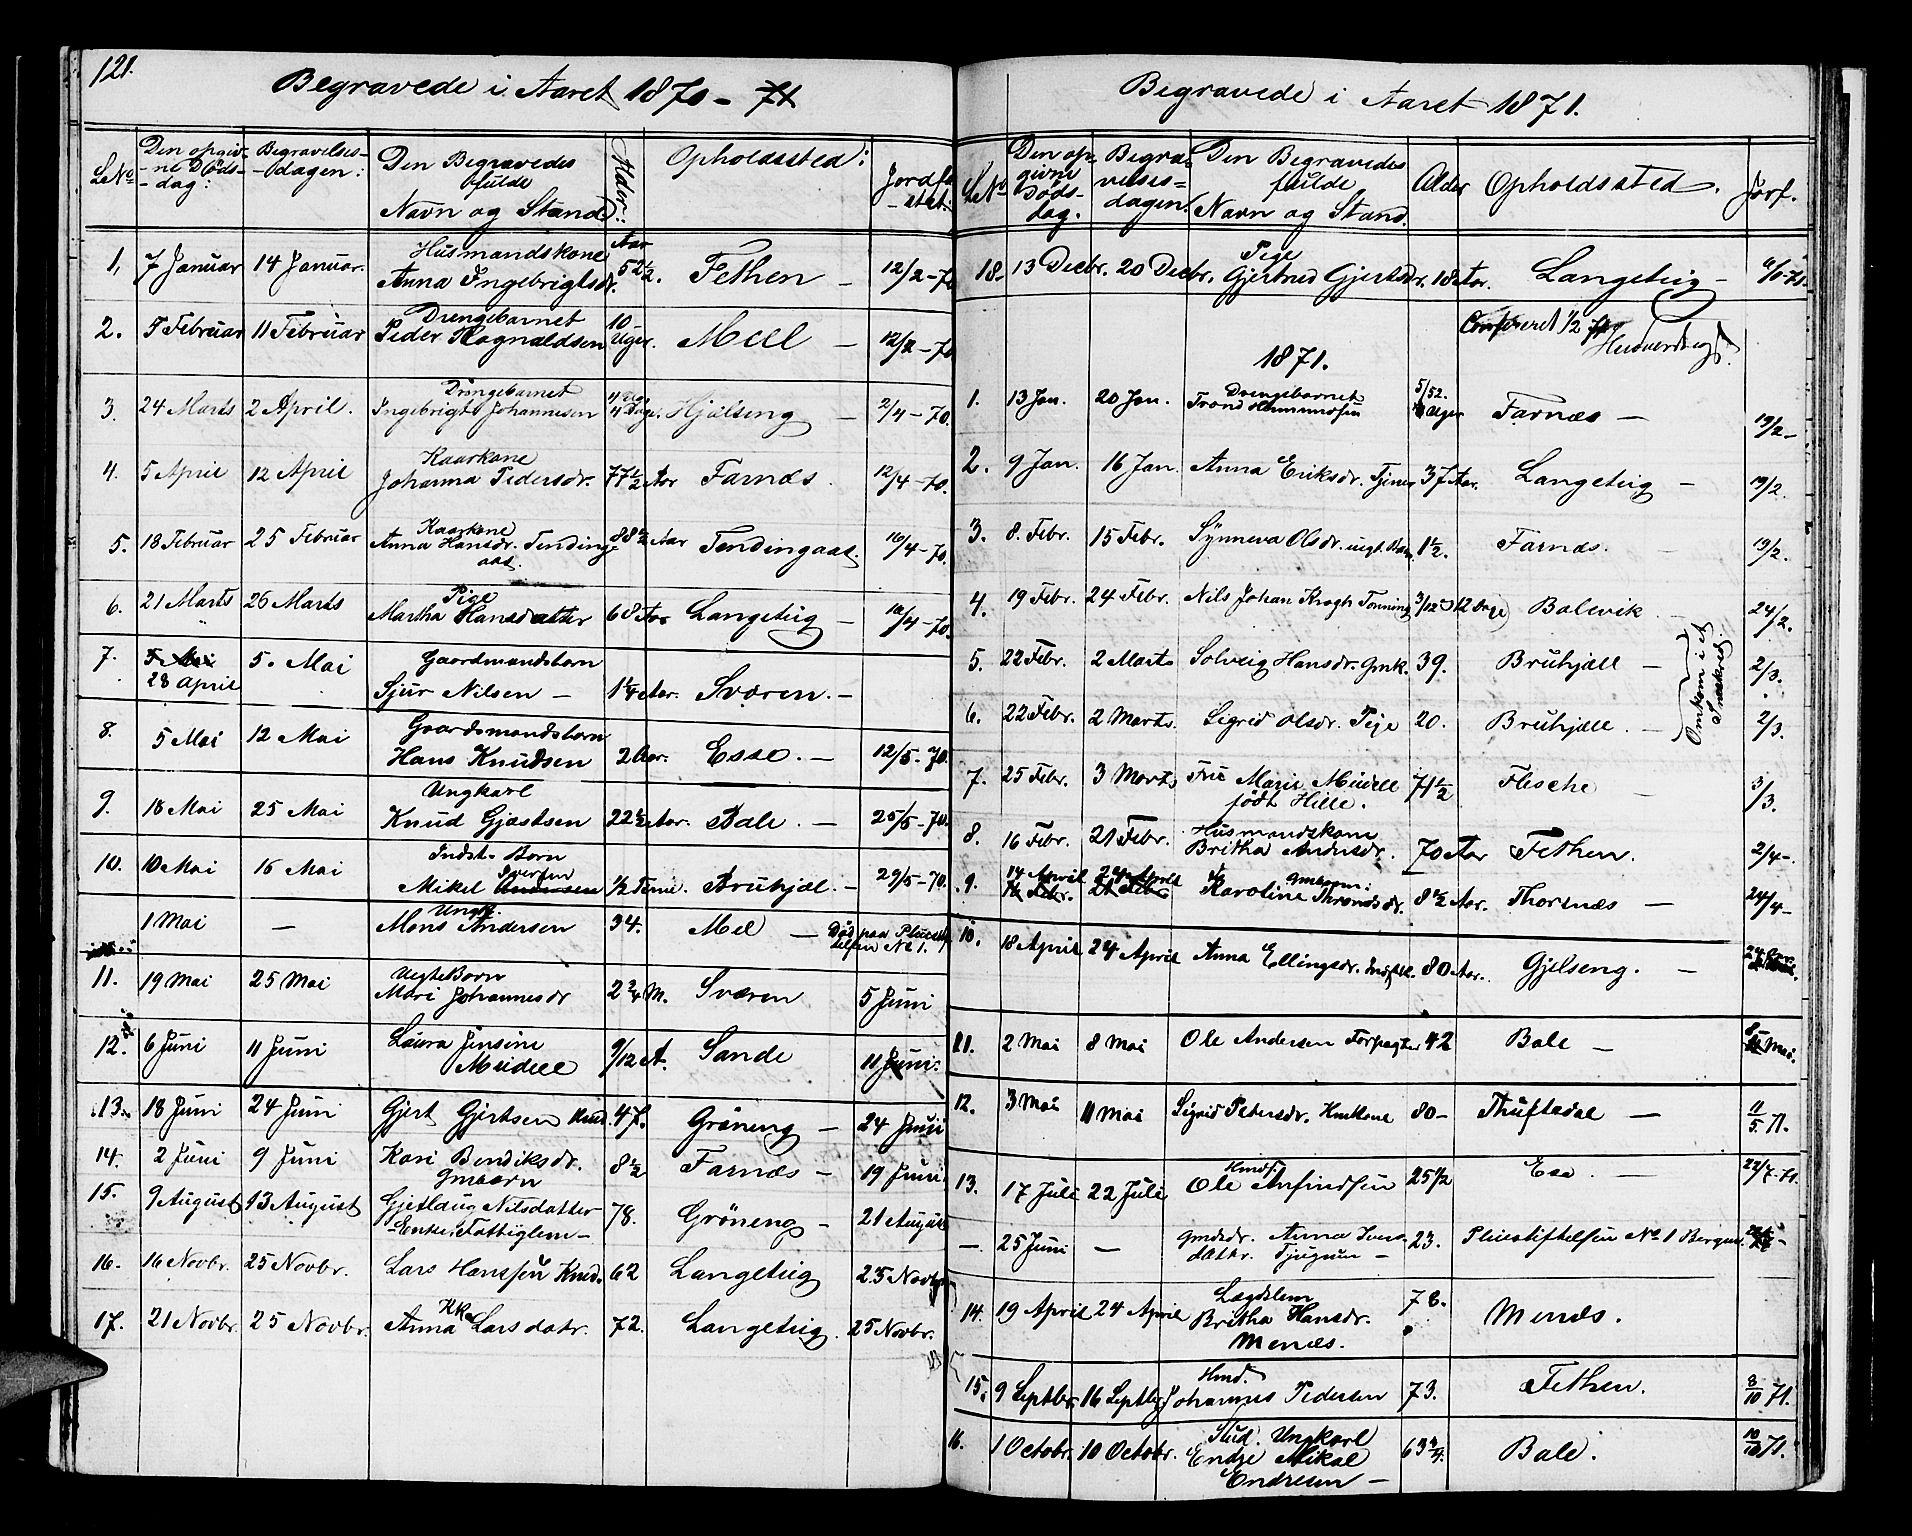 121.
Begravede i Aaret 1870 - 71
LNo Den opgivne Døds-dag: Begravelses-dagen: Den Begravedes fulde Navn og Stand Alder: Opholdssted: Jordf.
1, 7 Januar 14 Januar. Husmandskone Anna Ingebrigtsdr. Aar 52 1/2. Fethen - 12/2-70
2. 5 Februar 11 Februar Drengebarnet Peder Ragnaldsen 10 Uger. Mell - 12/2-70
3. 24 Marts 2 April. Drengebarnet Ingebrigt Johannesen Hjelseng - 2/4-70.
4. 5 April 12 April Kaarkone Johanna Pedersdr. 77 1/2 Aar Farnæs. 12/4-70.
5. 18 Februar 25 Februar Kaarkone Anna Hansdr. Tendingaas. 88 1/2 Aar Tendingaas. 10/4-70.
6. 21 Marts 26 Marts Pige Martha Hansdatter 68 Aar Langeteig - 10/4-70.
7. 5 Mai 28 April 5. Mai Gaardmandsbarn Sjur Nilsen - 1 1/4 Aar. Sværen. -
8. 5 Mai 12 Mai Gaardsmandsbarn Hans Knudsen 2 Aar. Esse. - 12/5-70.
9. 18 Mai 25 Mai Ungkarl Knud Gjertsen 22 1/2 Aar. Bale. - 25/5-70.
10. 10 Mai 16 Mai Indst. Barn Mikel Iversen 1/2 Time. Bruhjæl. - 29/5-70.
1 Mai - Ungk. Mons Andersen 34. Mel - Død paa Pleiestiftelsen No 1.
11. 19 Mai 25 Mai Uegte Barn Mari Johannesdr 2 3/4 M. Sværen 5 Juni
12. 6 Juni 11 Juni Laura Jensine Meidell 9/12 A. Sande 11 Juni.
13. 18 Juni 24 Juni Gjert Gjertsen 47. Grøneng - 24 Juni
14. 2 Juni 9 Juni Kari Bendiksdr. Gmbarn 8 1/2 Farnæs - 19 Juni
15. 9 August 13 August Gjertlaug Nilsdatter -Enke, Fattiglem- 78. Grøneng - 21 August
16. 16 Novbr. 25 Novbr. Lars Hanssen 62 Langeteig 25 Novbr
17. 21 Novbr. 25 Novbr. Hk Anna Larsdatr. 72. Langeteig. 25 Novbr.
Begravede i Aaret 1871.
LNo Den opgivne Døds-dag. Begravelses-dagen. Den Begravedes fulde Navn og Stand. Alder Opholdssted. Jorf.
18. 13 Decbr. 20 Decbr. Pige Gjertrud Gjertsdr. 18 Aar. Langeteig -
Confereret 1/2
1871.
1. 13 Jan. 20 Jan. Drengebarnet Trond 5/52. Uger Farnæs - 19/2-
2. 9 Jan. 16 Jan. Anna Eriksdr. Tjener 37 Aar. Langeteig - 19/2.
3. 8. Febr. 15 Febr. Synneva Olsdr. uegt. Barn 1 1/2. Farnæs. - 19/2.
4. 19 Febr. 24 Febr. Nils Johan Krogh Tonning 3/12 12 Dage) Balevik 24/2.
5. 22 Febr. 2 Marts Solveig Hansdr. Gmk. 39. Bruhjæll - 2/3.
6. 22 Febr. 2 Marts. Sigrid Olsdr. Pige 20. Bruhjæll. - 2/3.
Omkom i et Sneskred.
7. 25 Febr. 3 Marts Frue Marie Meidell født Hille. 71 1/2 Flesche - 3/3.
8. 16 Febr. 21 Febr. Husmandskone Britha Andersdr. 70 Aar Fethen. 2/4-
9. 14 April 24 April Gmbarn. Karoline Throndsdr. 8 1/2 Aar. Thorsnæs - 24/4-
10. 18 April 24 April Anna Ellingsdr. 80 Aar. Gjelseng. -
11. 2 Mai 8 Mai Ole Andersen Forpagter 42 Bale - 8 Mai.
12. 3 Mai 11 Mai Sigrid Petersdr. 80- Thuftedal - 11/5 71.
13. 17 Juli 22 Juli Hmdf. Ole Anfindsen 25 1/2 Ese. - 22/7-71.
- 25 Juni - Gmdsdr. Anna Iversdatr. Tjugum - 23. Pleiestiftelsen No 1 Bergen.
14. 19 April 24 April Lægdslem Britha Hansdr. Menæs. 78. Menæs.
15. 9 Septbr. 16 Septbr. Hmd. Johannes Pedersen 73. Fethen. 8/10 71.
16. 1 Octobr. 10 Octobr. Stud. Ungkarl Endre Mikal Endresen - 63 3/4. Bale. 10/10 71.